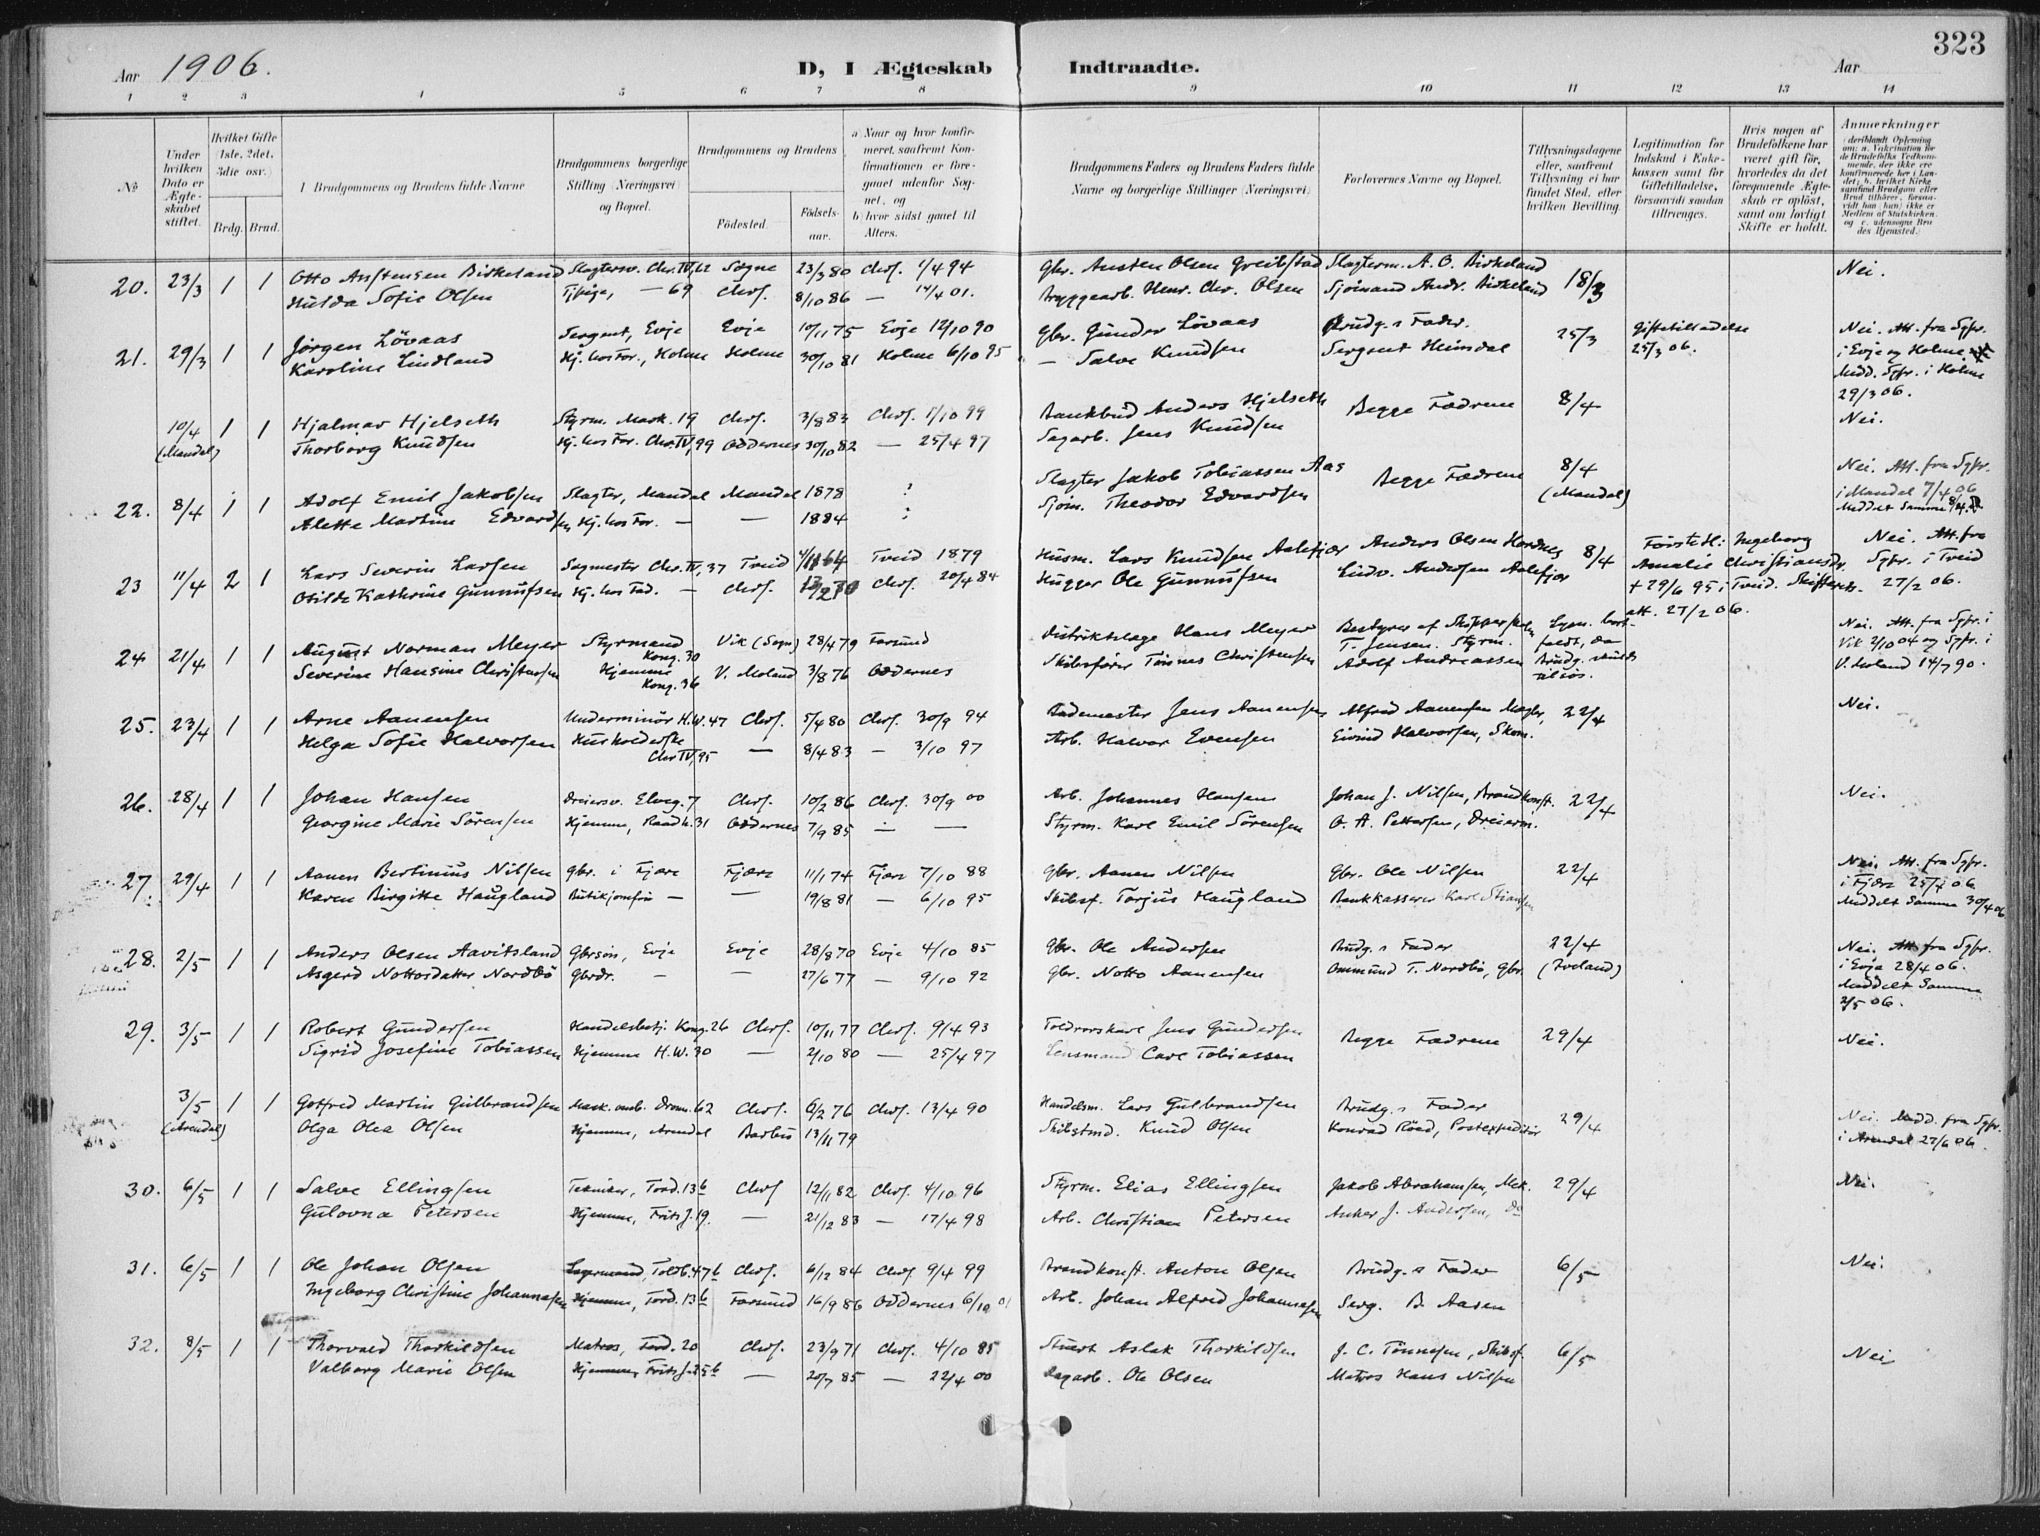 323
Aar 1906.
D, I Ægteskab Indtraadte.
Aar
1 2 3 4 5 6 7 8 9 10 11 12 13 14
No
Under hvilken Dato er Ægteskabet stiftet.
Hvilket Gifte (1ste, 2det, 3die osv.)
Brdg. Brud.
Brudgommens og Brudens fulde Navne
Brudgommens borgerlige Stilling (Næringsvei) og Bopæl.
Brudgommens og Brudens
Födested.
Födsels-aar.
a) Naar og hvor konfirmeret, saafremt Konfirmationen er foregaaet udenfor Sognet, og
b) hvor sidst gaaet til Alters.
Brudgommens Faders og Brudens Faders fulde Navne og borgerlige Stillinger (Næringsvei)
Forlovernes Navne og Bopæl.
Tillysningsdagene eller, saafremt Tillysning ei har fundet Sted, efter hvilken Bevilling.
Legitimation for Indskud i Enkekassen samt for Giftetilladelse, forsaavidt saadan tiltrænges.
Hvis nogen af Brudefolkene har været gift för, hvorledes da det foregaaende Ægteskab er oplöst, samt om lovligt Skifte er holdt.
Anmærkninger
20. 23/3 1 1 Otto Anstensen Birkeland Slagtersv. Chr. IV, 62 Sogne 23/3 80 Chrs. 1/4 94 Gbr. Austen Olsen Greibstad Slagterm. A. O. Birkeland 18/3 Nei.
Hulda Sofie Olsen — 69 Chrs. 8/10 86 — 14/4 01. Bryggearb. Henr. Chr. Olsen Sjömand Andr. Birkeland
21. 29/3 1 1 Jørgen Lövaas Sergent, Evje Evje 10/11 75 Evje 12/10 90 Gbr. Gunder Lövaas Brudg.s Fader. 25/3 Giftetilladelse Nei. Att. fra Sgpr.
Karoline Lindland Hj. hos For., Holme Holme 30/10 81 Holme 6/10 95 — Salve Knudsen Sergent Heimdal 25/3 06. i Evje og Holme.
Medd. Sgpr. i Holme
29/3 06.
10/4 1 1 Hjalmar Hjelseth Styrm. Mark. 19 Chrs. 3/8 83 Chrs. 1/10 99 Bankbud Anders Hjelseth Begge Fædrene 8/4 Nei.
(Mandal) Thorborg Knudsen Hj. hos For. Chr. IV, 99 Oddernes 30/10 82 — 25/4 97 Sagarb. Jens Knudsen
22. 8/4 1 1 Adolf Emil Jakobsen Slagter, Mandal Mandal 1878 ? Slagter Jakob Tobiassen Aas Begge Fædrene 8/4 Nei. Att. fra Sgpr.
Alette Martine Edvardsen Hj. hos For. — — 1884 ? Sjöm. Theodor Edvardsen (Mandal) i Mandal 7/4 06
Meddelt Samme
23 11/4 2 1 Lars Severin Larsen Sagmester Chr. IV, 37 Tveid Tveid 1879 Husm. Lars Knudsen Aalefjær Anders Olsen Hordnes 8/4 Förste H: Ingeborg Nei. Att. fra
Otilde Kathrine Gunnufsen Hj. hos Fad. — Chrs. Chrs. 20/4 84 Hugger Ole Gunnufsen Ludv. Andersen Aalefjær Amalie Christiansdr. Sgpr. i Tveid
† 29/6 95 i Tveid. Skifteatt. 27/2 06. 27/2 06.
24 21/4 1 1 August Norman Meyer Styrmand Kong. 30 Vik (Sogn) 28/4 79 Farsund Distriktslæge Hans Meyer Bestyrer af Skipperskolen T. Jensen. Styrm. Lysn. bortfaldt, da Nei. Att. fra Sgpr. i
Severine Hansine Christensen Hjemme Kong. 36 V. Moland 3/8 76 Oddernes Skibsfører Tönnes Christensen Adolf Andreassen Brudg. skulde tilsjøs. Vik 2/10 04 og Sgpr. i
V. Moland 14/7 90.
25. 23/4 1 1 Arne Aanensen Underminör H.W. 47 Chrs. 5/4 80 Chrs. 30/9 94 Bademester Jens Aanensen Alfred Aanensen Mægler, 22/4 Nei.
Helga Sofie Halvorsen Husholderske Chr IV, 95 — 8/4 83 — 3/10 97 Arb. Halvor Evensen Eivind Halvorsen, Skom.
26. 28/4 1 1 Johan Hansen Dreiersv. Elveg. 7 Chrs. 10/2 86 Chrs. 30/9 00 Arb. Johannes Hansen Johan J. Nilsen, Brandkonst. 22/4 Nei.
Georgine Marie Sörensen Hjemme, Raadh. 31 Oddernes 7/9 85 — — Styrm. Karl Emil Sörensen O. A. Pettersen, Dreierm.
27 29/4 1 1 Aanen Bertinius Nilsen Gbr. i Fjære Fjære 11/1 74 Fjære 7/10 88 Gbr. Aanen Nilsen Gbr. Ole Nilsen 22/4 Nei. Att. fra Sgpr.
Karen Birgitte Haugland Butikjomfru — — 19/8 81 — 6/10 95 Skibsf. Torjus Haugland Bankkasserer Karl Stiansen i Fjære 25/4 06
Meddelt Samme 30/4 06
28. 2/5 1 1 Anders Olsen Aavitsland Gbrsön, Evje Evje 28/8 70 Evje 4/10 85 Gbr. Ole Andersen Brudg.s Fader 22/4 Nei. Att. fra Sgpr.
Asgerd Nottosdatter Nordbö Gbrdr. — — 27/6 77 — 9/10 92 Gbr. Notto Aanensen Ommund T. Nordbö, Gbr. (Iveland) i Evje 28/4 06.
Meddelt Samme
2/5 06.
29. 3/5 1 1 Robert Gundersen Handelsbetj. Kong. 26 Chrs. 10/11 77 Chrs. 9/4 93 Toldrorskarl Jens Gundersen Begge Fædrene 29/4 Nei.
Sigrid Josefine Tobiassen Hjemme H.W. 30 — 2/10 80 — 25/4 97 Lensmand Carl Tobiassen
3/5 1 1 Gotfred Martin Gulbrandsen Mask. omb. Dronn. 62 Chrs. 6/2 76 Chrs. 13/4 90 Handelsm. Lars Gulbrandsen Brudg.s Fader 29/4 Nei. Medd. fra Sgpr.
(Arendal) Olga Olea Olsen Hjemme, Arendal Barbu 13/11 79 Skibstmd. Knud Olsen Konrad Röed, Postexpeditör i Arendal 27/6 06.
30. 6/5 1 1 Salve Ellingsen Tekniker, Tord. 13b Chrs 12/11 82 Chrs. 4/10 96 Styrm. Elias Ellingsen Jakob Abrahamsen, Mek. 29/4 Nei.
Gulovna Petersen Hjemme, Frits J. 19. — 21/12 83 — 17/4 98 Arb. Christian Petersen Anker J. Andersen, Do
31. 6/5 1 1 Ole Johan Olsen Lagermand, Toldb. 47b Chrs. 6/12 84 Chrs. 9/4 99 Brandkonst. Anton Olsen Brudg.s Fader 6/5 Nei.
Ingeborg Christine Johannesen Hjemme, Tord. 13b Farsund 16/9 86 Oddernes 6/10 01 Arb. Johan Alfred Johannesen Serg. B. Aasen
32. 8/5 1 1 Thorvald Thorkildsen Matros, Tord. 20 Chrs. 23/9 71 Chrs. 4/10 85 Stuert Aslak Thorkildsen J. C. Tönnesen, Skibsf. 6/5 Nei
Valborg Marie Olsen Hjemme, Frits J. 25b — 20/7 85 — 22/4 00 Sagarb. Ole Olsen Matros Hans Nilsen